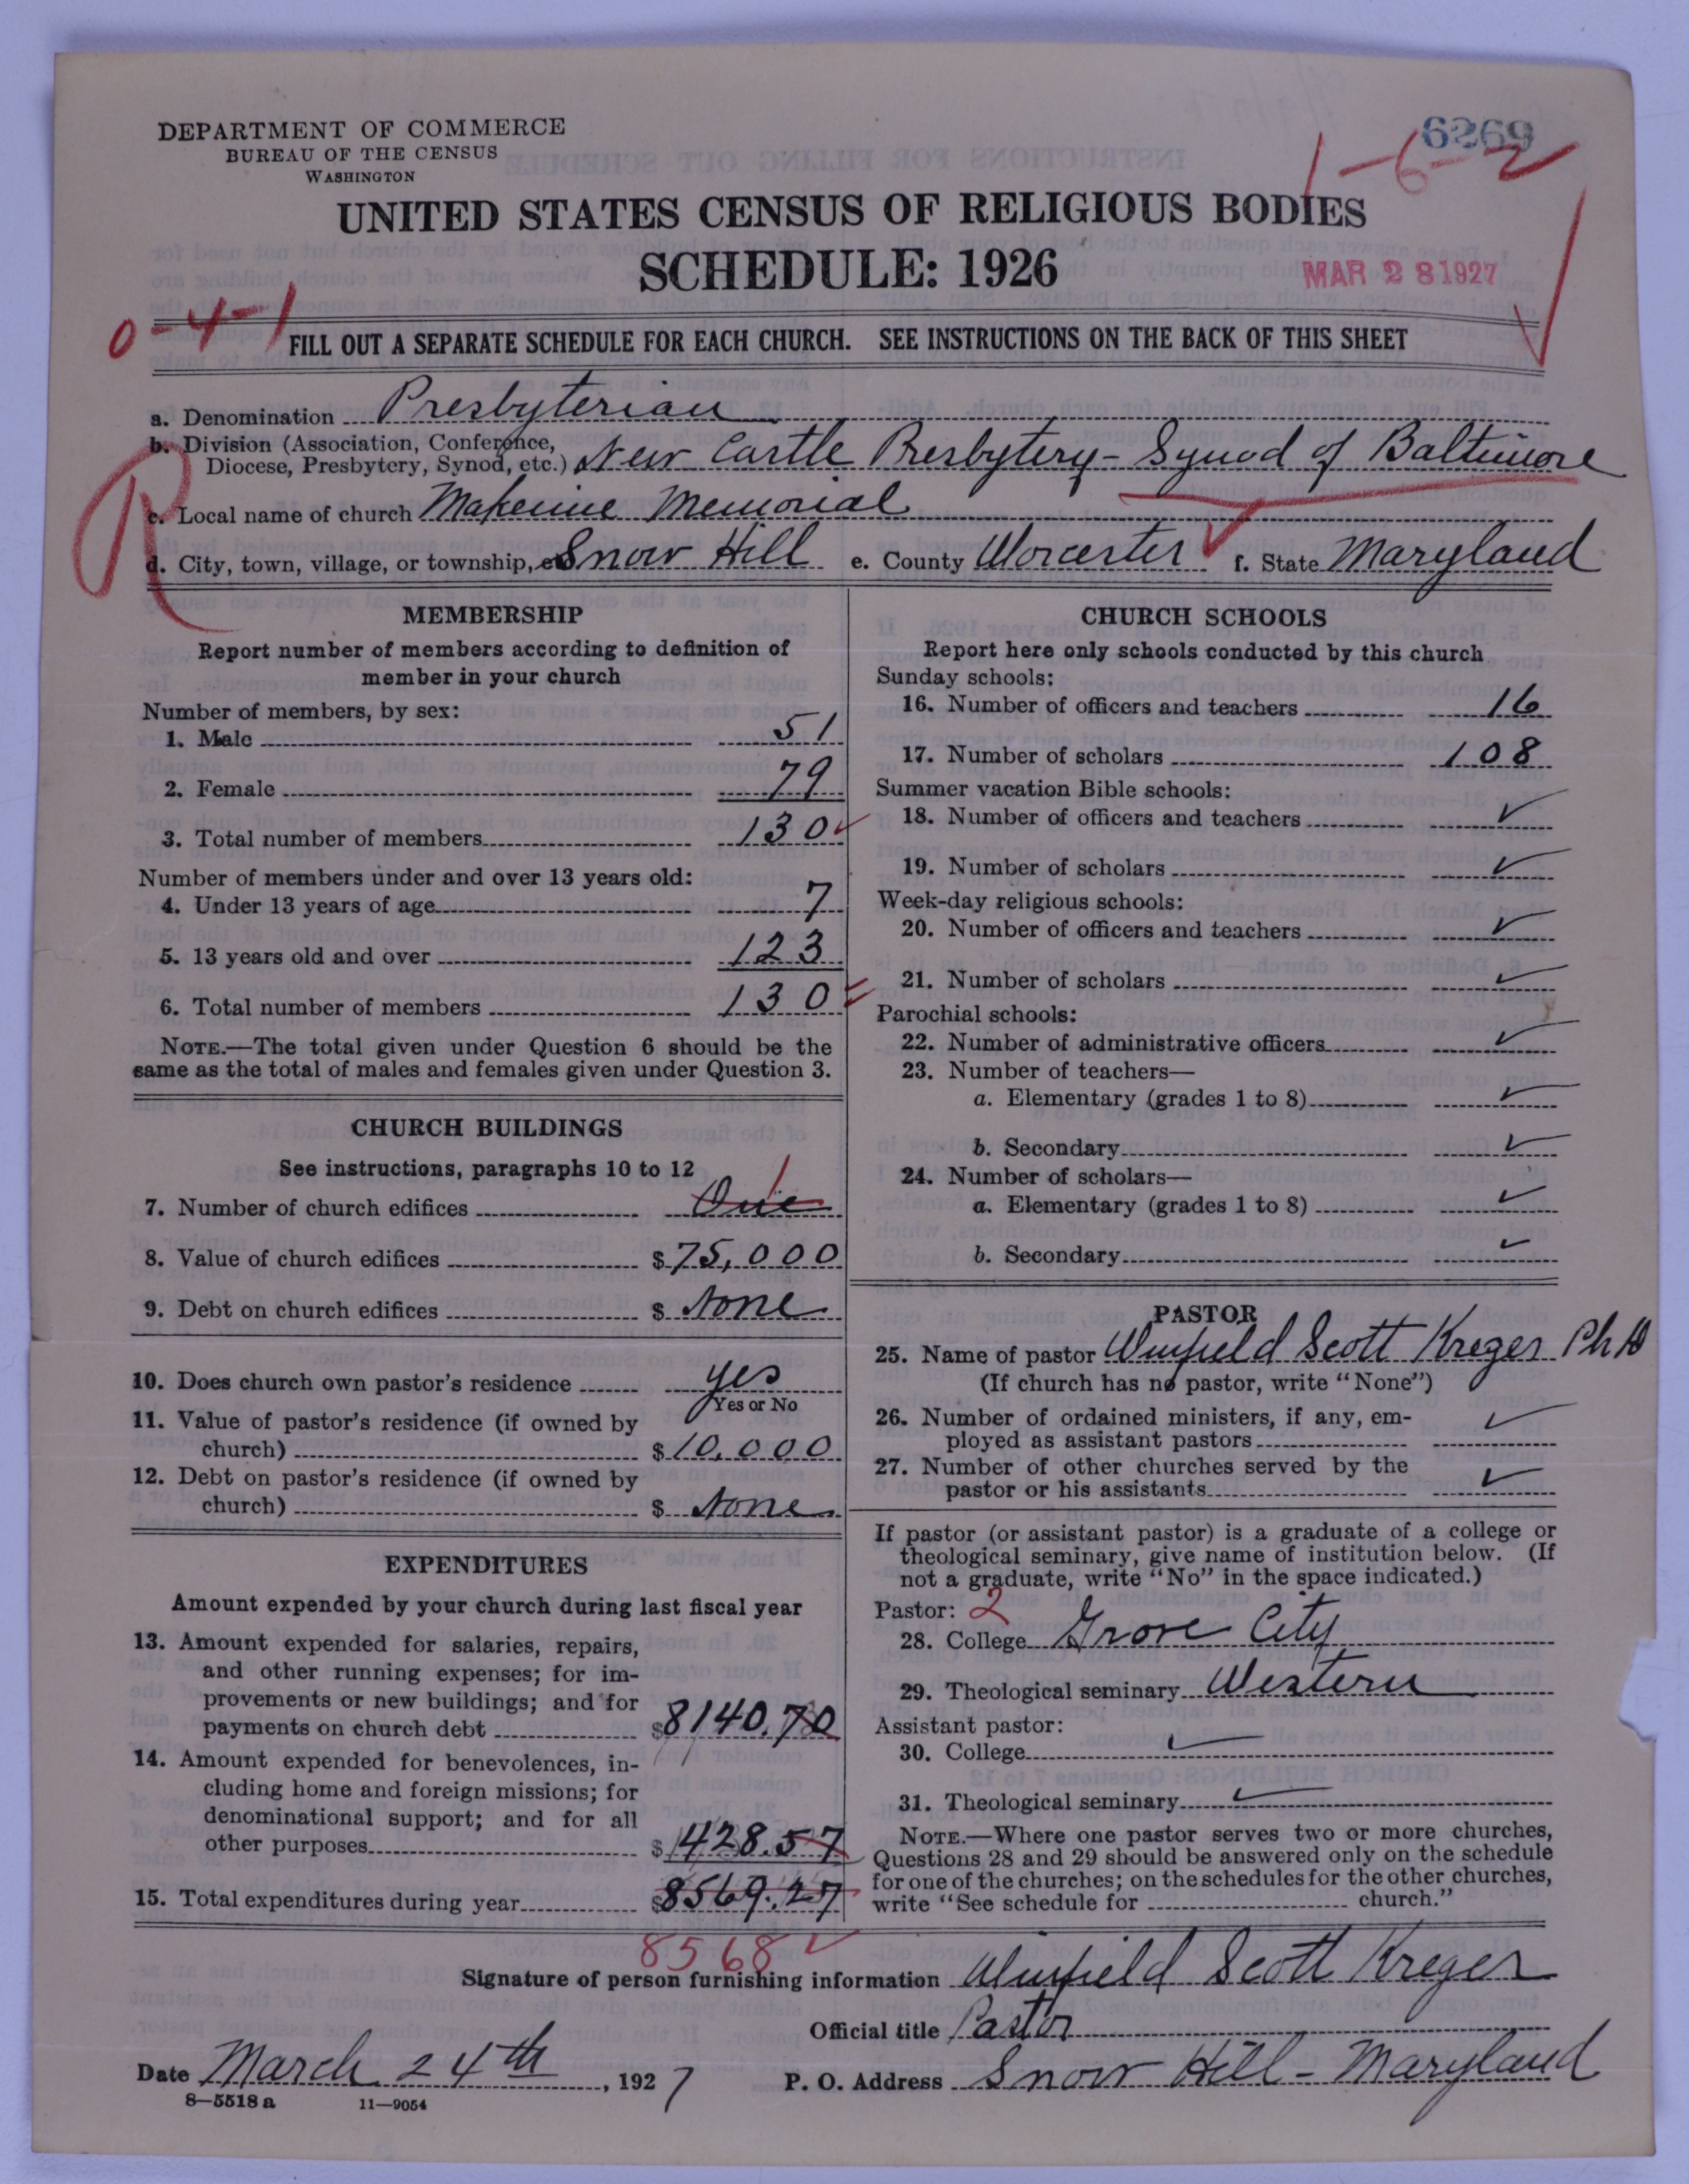 DEPARTMENT OF COMMERCE
BUREAU OF THE CENSUS
WASHINGTON
6269
1-6-2
UNITED STATES CENSUS OF RELIGIOUS BODIES
SCHEDULE: 1926
MAR 28 1927
0-4-1
FILL OUT A SEPARATE SCHEDULE FOR EACH CHURCH. SEE INSTRUCTIONS ON THE BACK OF THIS SHEET
a. Denomination Presbyterian
b. Division (Association, Conference,
Diocese, Presbytery, Synod, etc.) New Castle Presbytery - Synod of Baltimore
R
c. Local name of church Makemie Memorial
d. City, town, village, or township, Snow Hill e. County Worcester f. State Maryland
MEMBERSHIP
Report number of members according to definition of
member in your church
Number of members, by sex:
1. Male 51
2. Female 79
3. Total number of members 130
Number of members under and over 13 years old:
4. Under 13 years of age 7
5. 13 years old and over 123
6. Total number of members 130
NOTE.—The total given under Question 6 should be the
same as the total of males and females given under Question 3.
CHURCH BUILDINGS
See instructions, paragraphs 10 to 12
7. Number of church edifices One 1
8. Value of church edifices $ 75,000
9. Debt on church edifices $ None
10. Does church own pastor's residence yes
Yes or No
11. Value of pastor's residence (if owned by
church) $ 10,000
12. Debt on pastor's residence (if owned by
church) $ None
EXPENDITURES
Amount expended by your church during last fiscal year
13. Amount expended for salaries, repairs,
and other running expenses; for im-
provements or new buildings; and for
payments on church debt $ 8140.70
14. Amount expended for benevolences, in-
cluding home and foreign missions; for
denominational support; and for all
other purposes $ 428.57
15. Total expenditures during year $ 8569.27
8568
CHURCH SCHOOLS
Report here only schools conducted by this church
Sunday schools:
16. Number of officers and teachers 16
17. Number of scholars 108
Summer vacation Bible schools:
18. Number of officers and teachers ✓
19. Number of scholars ✓
Week-day religious schools:
20. Number of officers and teachers ✓
21. Number of scholars ✓
Parochial schools:
22. Number of administrative officers ✓
23. Number of teachers—
a. Elementary (grades 1 to 8) ✓
b. Secondary ✓
24. Number of scholars—
a. Elementary (grades 1 to 8) ✓
b. Secondary ✓
PASTOR
25. Name of pastor Winfield Scott Kreger Ph D
(If church has no pastor, write "None")
26. Number of ordained ministers, if any, em-
ployed as assistant pastors ✓
27. Number of other churches served by the
pastor or his assistants ✓
If pastor (or assistant pastor) is a graduate of a college or
theological seminary, give name of institution below. (If
not a graduate, write "No" in the space indicated.)
Pastor: 2
28. College Grove City
29. Theological seminary Western
Assistant pastor:
30. College ✓
31. Theological seminary ✓
NOTE.—Where one pastor serves two or more churches,
Questions 28 and 29 should be answered only on the schedule
for one of the churches; on the schedules for the other churches,
write "See schedule for church."
Signature of person furnishing information Winfield Scott Kreger
Official title Pastor
Date March 24th, 1927 P. O. Address Snow Hill - Maryland
8—5518 a 11—9054